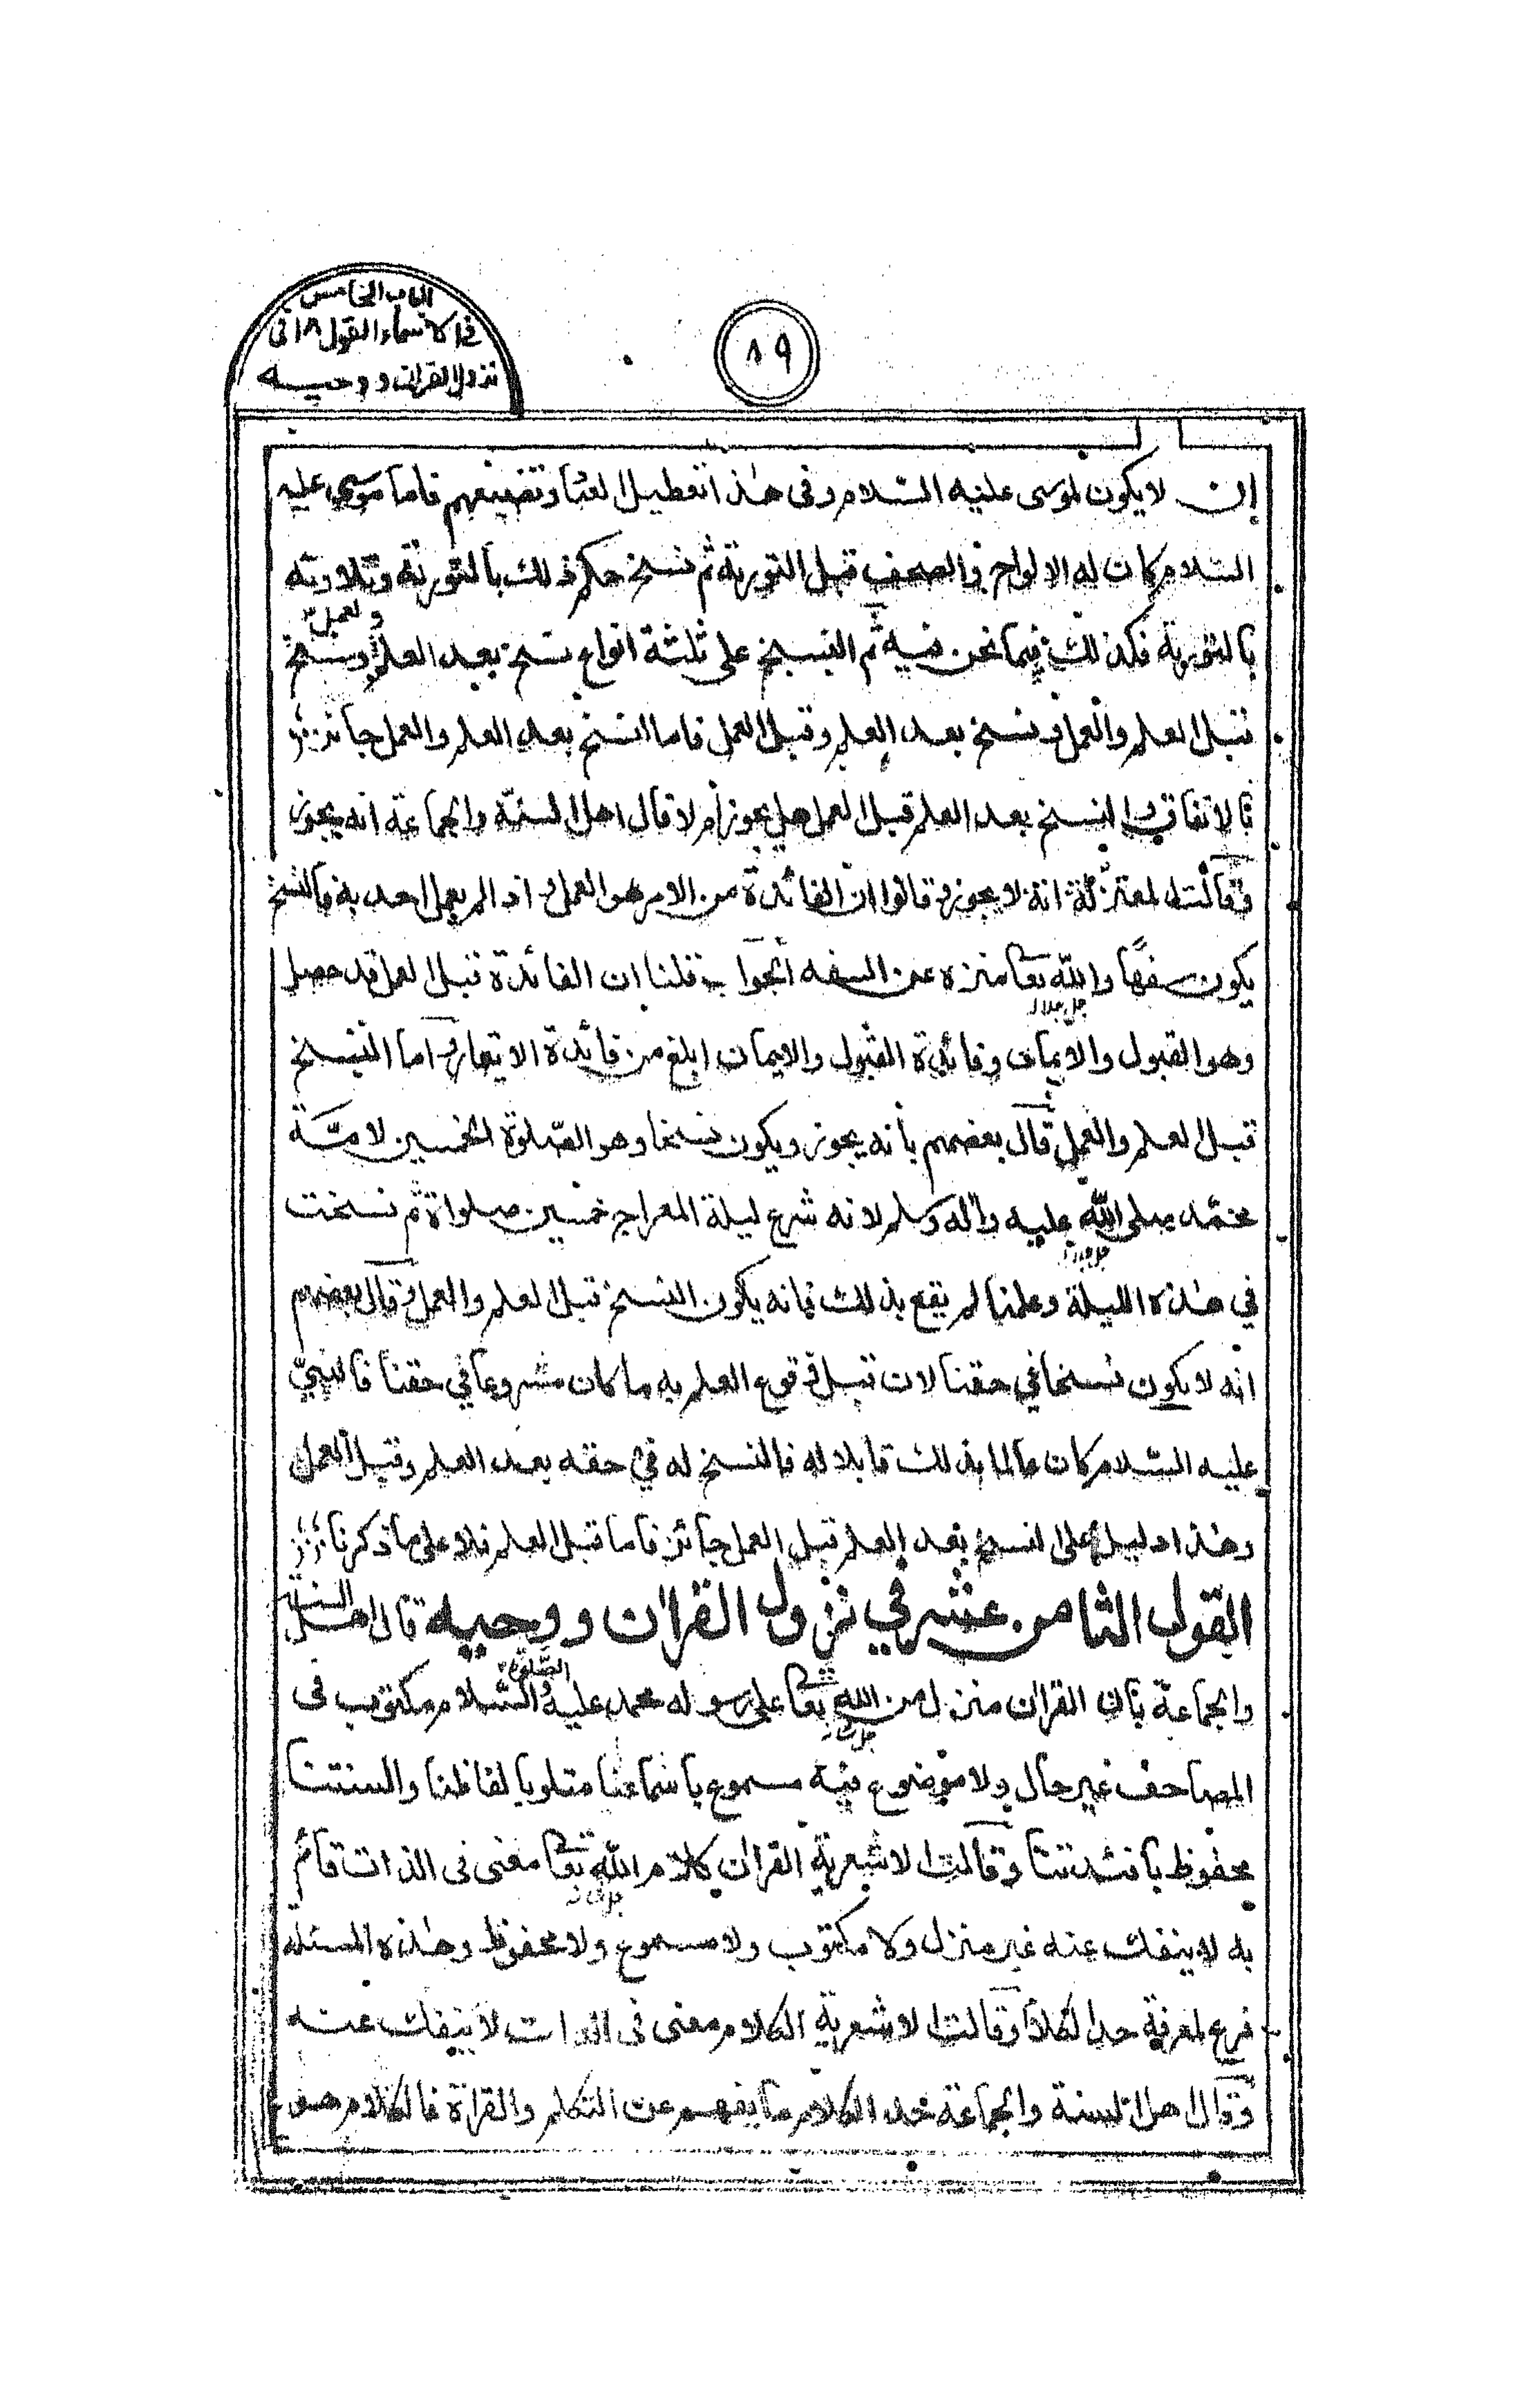 الباب الخامس
في الاسماء القول ١٨ في
نزول القران ووحيه
٨٩
ان لا يكون لموسى عليه السلام وفي هذا تعطيل العباد وتضييعهم فاما موسى عليه
السلام كان له الالواح والصحف قبل التورية ثم نسخ حكم ذلك بالتورية وتلاوته
والعمل
بالتورية فكذلك فيما نحن فيه ثم النسخ على ثلثة انواع نسخ بعد العلم ونسخ
قبل العلم والعمل ونسخ بعد العلم وقبل العمل فاما النسخ بعد العلم والعمل جائز
بالاتفاق والنسخ بعد العلم قبل العمل هل يجوز ام لا قال اهل السنة والجماعة انه يجوز
وقالت المعتزلة انه لا يجوز وقالوا ان الفائدة من الامر هو العمل اذ الم يعمل احد به فالنسخ
يكون سفها والله تعا منزه عن السفه الجواب قلنا ان الفائدة قبل العمل قد حصل
جل جلاله
وهو القبول والايمان وفائدة القبول والايمان ابلغ من فائدة الايتمار واما النسخ
قبل العلم والعمل قال بعضهم بانه يجوز ويكون نسخا وهو الصلوة الخمسين لامة
محمد صلى الله عليه واله وسلم لانه شرع ليلة المعراج خمسين صلواة ثم نسخت
في هذه الليلة وعلمنا لم يقع بذلك فانه يكون النسخ قبل العلم والعمل وقال بعضهم
انه لا يكون نسخا في حقنا لان قبل وقوع العلم به ما كان مشروعا في حقنا فالنبي
عليه السلام كان عالما بذلك قابلا له فالنسخ له في حقه بعد العلم وقبل العمل
وهذا دليل على النسخ بعد العلم قبل العمل جائز فاما قبل العلم فلا على ما ذكرنا
القول الثامن عشر في نزول القران ووحيه قال اهل السنة
الصلوة
والجماعة بان القران منزل من الله تعا على رسوله محمد عليه السلام مكتوب في
المصاحف غير حال ولا موضوع فيه مسموع باسماعنا متلو بالفاظنا والسنتنا
محفوظ بافئدتنا وقالت الاشعرية القران كلام الله تعا معنى في الذات قائم
به لا ينفك عنه غير منزل ولا مكتوب ولا مسموع ولا محفوظ وهذه المسئلة
فرع لمعرفة حد الكلام وقالت الاشعرية الكلام معنى في الذات لا ينفك عنه
وقال اهل السنة والجماعة حد الكلام ما يفهم عن التكلم والقراة فالكلام هو